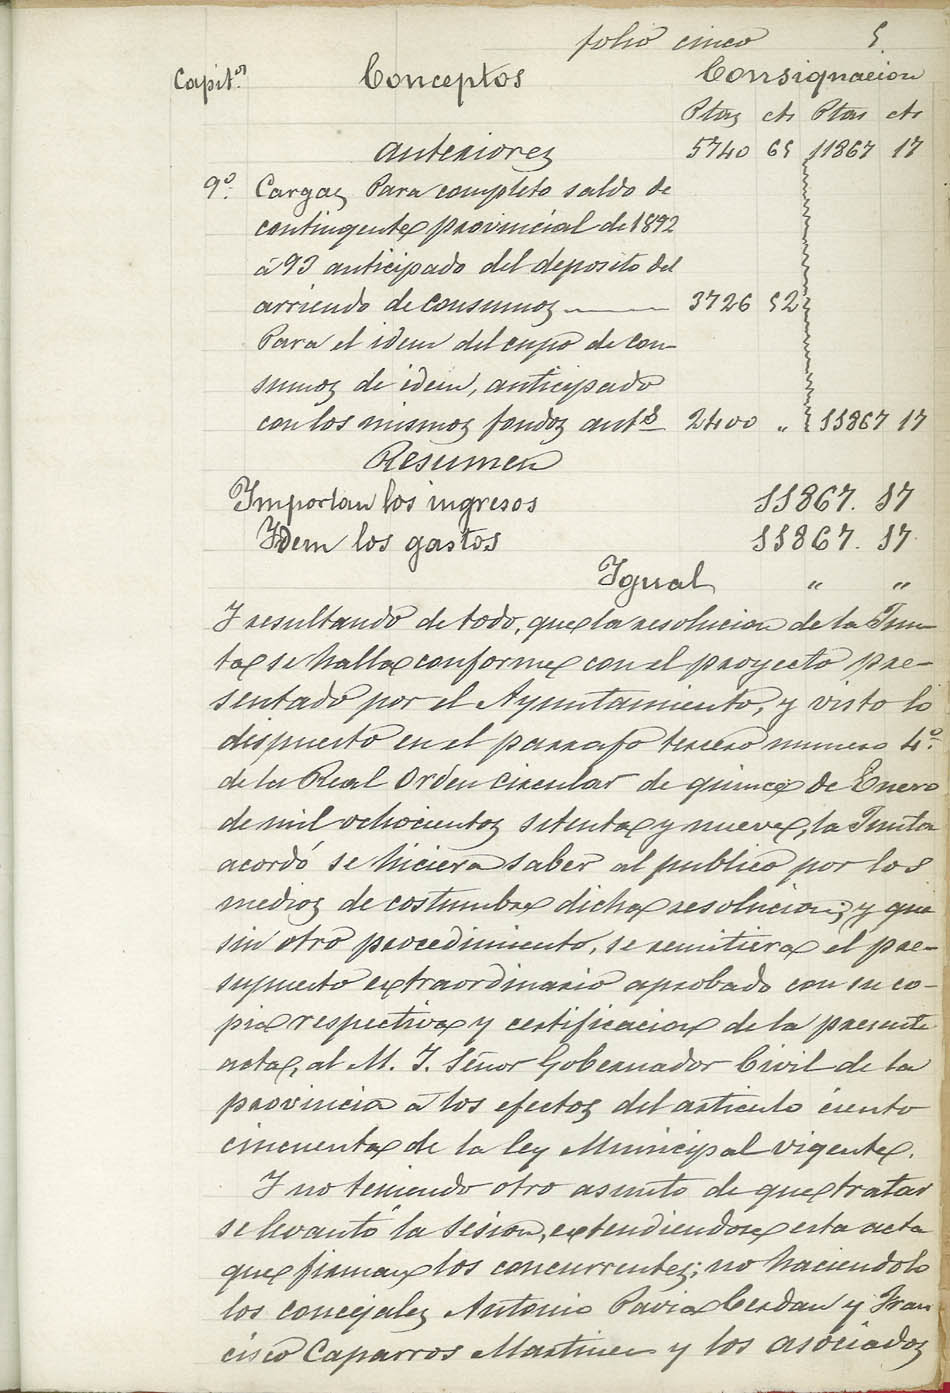 folio cinco 5.
Capit.os Conceptos Consignacion
Ptas cts Ptas cts
anteriores 5740 65 11867 17
9º. Cargas Para completo saldo de
contingente provincial de 1892
á 93 anticipado del deposito del
arriendo de consumos 3726 52
Para el idem del cupo de con-
sumos de idem, anticipado
con los mismos fondos ant.s 2400 " 11867 17
Resumen
Importan los ingresos 11867. 17
Idem los gastos 11867. 17
Igual " "
Y resultando de todo, que la resolucion de la Jun-
ta se halla conforme con el proyecto pre-
sentado por el Ayuntamiento, y visto lo
dispuesto en el parrafo tercero numero 4º.
de la Real Orden circular de quince de Enero
de mil ochocientos setenta y nueve, la Junta
acordó se hiciera saber al publico por los
medios de costumbre dicha resolucion; y que
sin otro procedimiento, se remitiera el pre-
supuesto extraordinario aprobado con su co-
pia respectiva y certificacion de la presente
acta, al M. I. Señor Gobernador Civil de la
provincia á los efectos del articulo ciento
cincuenta de la ley Municipal vigente.
Y no teniendo otro asunto de que tratar
se levantó la sesion, extendiendose esta acta
que firman los concurrentes; no haciendolo
los concejales Antonio Pavia Cerdan y Fran
cisco Caparros Martinez y los asociados